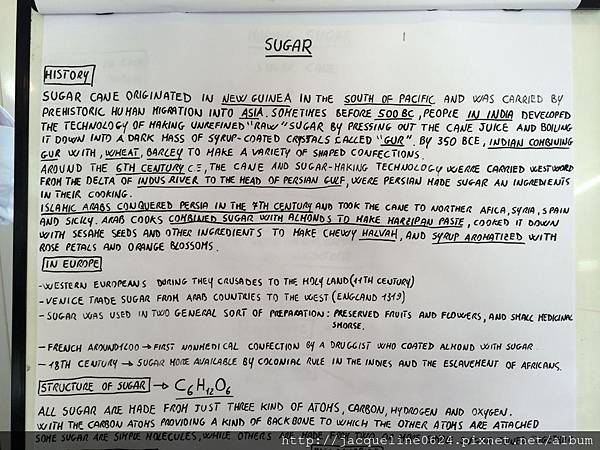 SUGAR
HISTORY
SUGAR CANE ORIGINATED IN NEW GUINEA IN THE SOUTH OF PACIFIC AND WAS CARRIED BY
PREHISTORIC HUMAN MIGRATION INTO ASIA. SOMETIMES BEFORE 500 BC, PEOPLE IN INDIA DEVELOPED
THE TECHNOLOGY OF MAKING UNREFINED "RAW" SUGAR BY PRESSING OUT THE CANE JUICE AND BOILING
IT DOWN INTO A DARK MASS OF SYRUP-COATED CRYSTALS CALLED "GUR". BY 350 BCE, INDIAN COMBINING
GUR WITH, WHEAT, BARCEY TO MAKE A VARIETY OF SHAPED CONFECTIONS.
AROUND THE 6TH CENTURY C.E, THE CANE AND SUGAR-MAKING TECHNOLOGY WERRE CARRIED WESTWORD
FROM THE DELTA OF INDUS RIVER TO THE HEAD OF PERSIAN GULF, WERE PERSIAN MADE SUGAR AN INGREDIENTS
IN THEIR COOKING.
ISLAMIC ARABS CONQUERED PERSIA IN THE 7TH CENTURY AND TOOK THE CANE TO NORTHER AFICA, SYRIA, SPAIN
AND SICILY. ARAB COOKS COMBINED SUGAR WITH ALMONDS TO MAKE MARZIPAN PASTE, COOKED IT DOWN
WITH SESAME SEEDS AND OTHER INGREDIENTS TO MAKE CHEWY HALVAH, AND SYRUP AROMATIZED WITH
ROSE PETALS AND ORANGE BLOSSOMS.
IN EUROPE
-WESTERN EUROPEANS DURING THEY CRUSADES TO THE HOLY LAND (11TH CENTURY)
-VENICE TRADE SUGAR FROM ARAB COUNTRIES TO THE WEST (ENGLAND 1319)
-SUGAR WAS USED IN TWO GENERAL SORT OF PREPARATION: PRESERVED FRUITS AND FLOWERS, AND SMALL MEDICINAL
SMORSE.
-FRENCH AROUND 1200 → FIRST NONMEDICAL CONFECTION BY A DRUGGIST WHO COATED ALMOND WITH SUGAR
-18TH CENTURY → SUGAR MORE AVAILABLE BY COLONIAL RULE IN THE INDIES AND THE ESLAVEMENT OF AFRICANS.
STRUCTURE OF SUGAR → C6H12O6
ALL SUGAR ARE MADE FROM JUST THREE KIND OF ATOMS, CARBON, HYDROGEN AND OXYGEN.
WITH THE CARBON ATOMS PROVIDING A KIND OF BACKBONE TO WHICH THE OTHER ATOMS ARE ATTACHED
SOME SUGAR ARE SIMPLE MOLECULES, WHILE OTHERS ARE MADE
http://jacqueline0624.pixnet.net/album